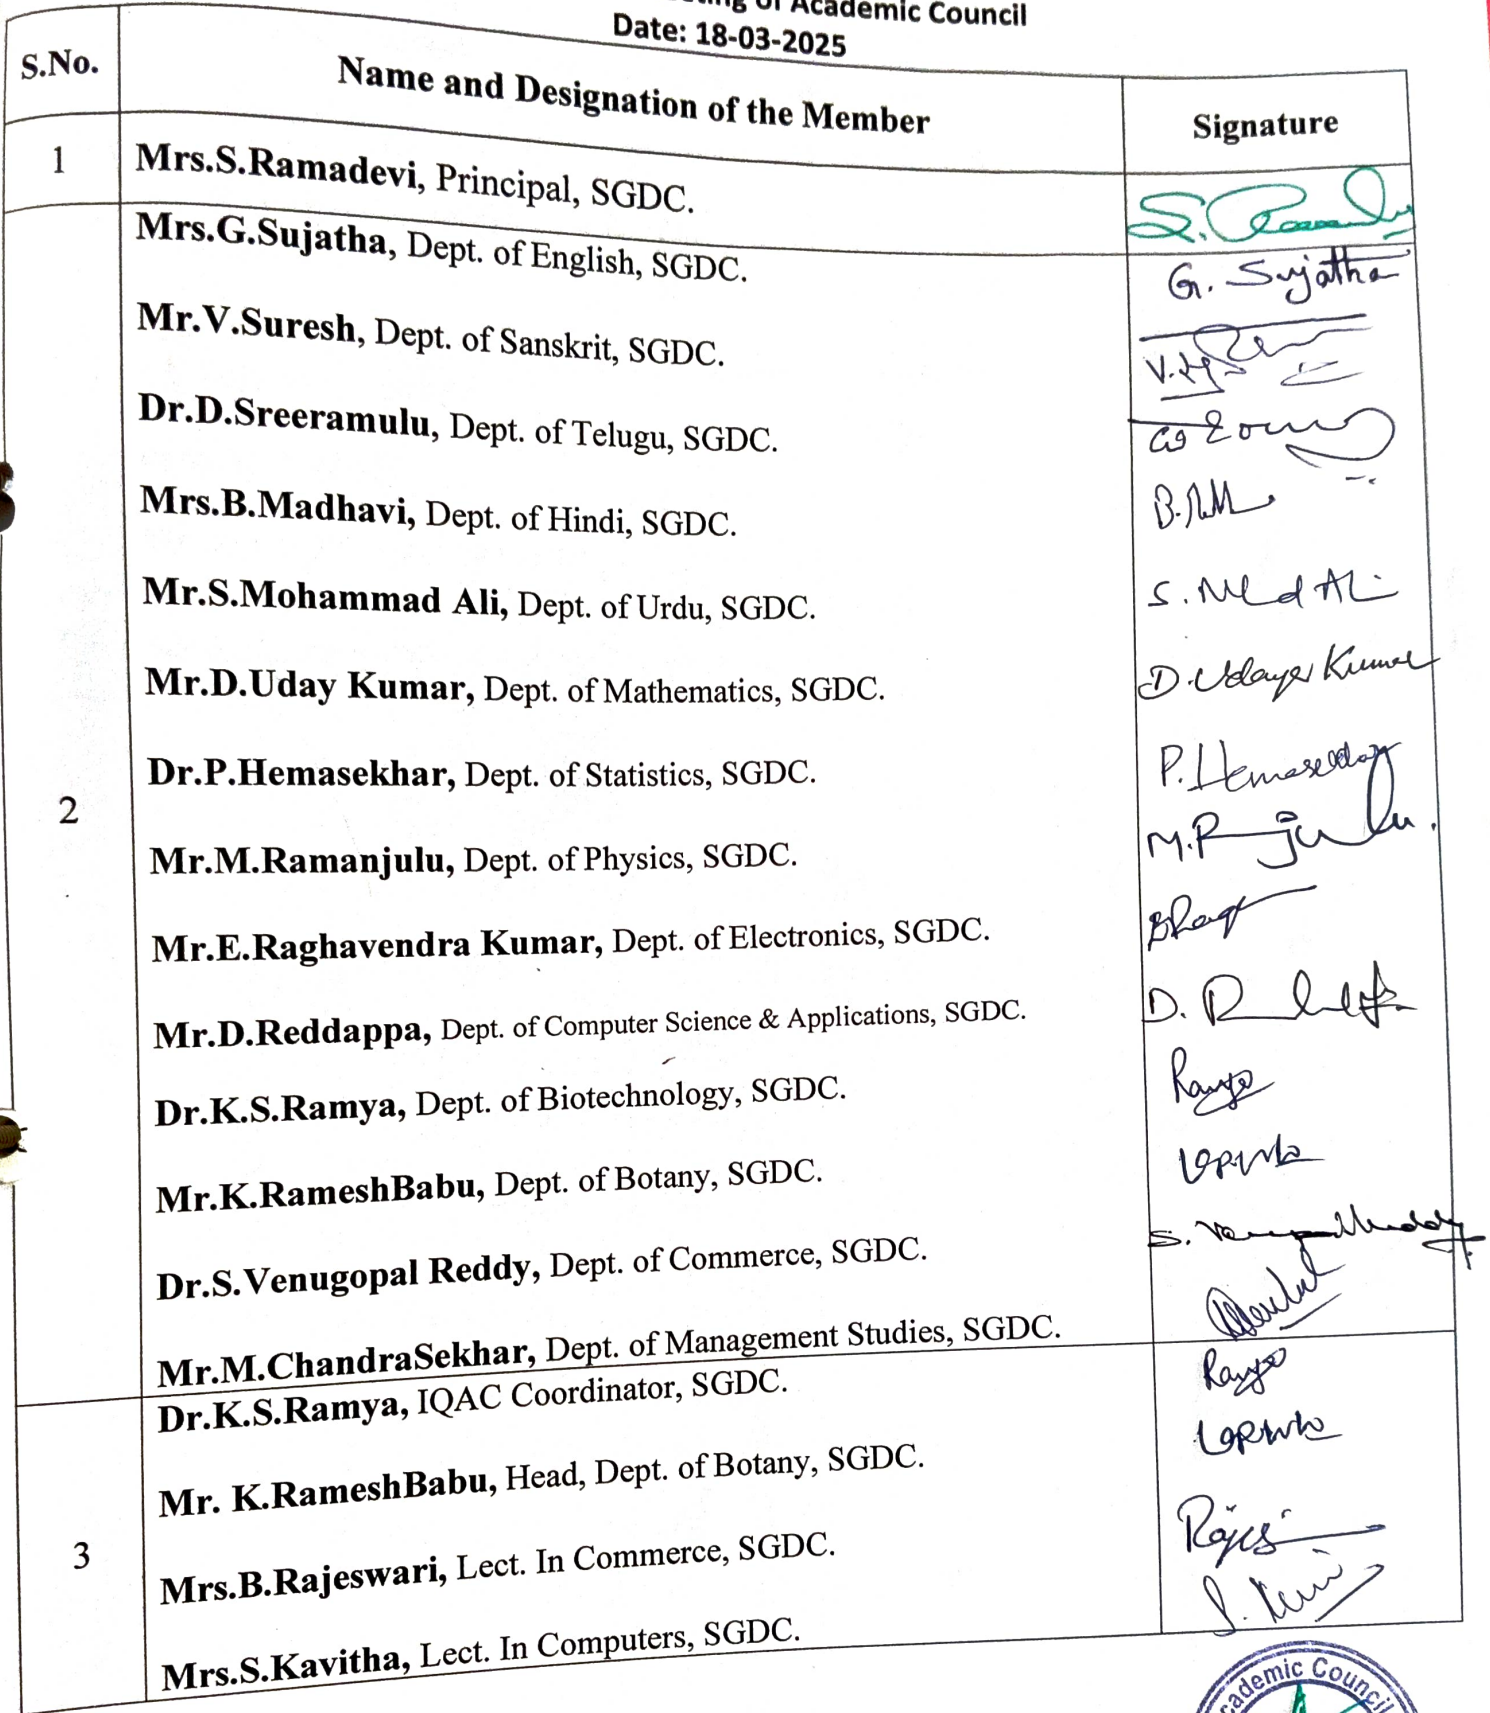 of Academic Council
Date: 18-03-2025
S.No. Name and Designation of the Member Signature
1 Mrs.S.Ramadevi, Principal, SGDC.
Mrs.G.Sujatha, Dept. of English, SGDC. G. Sujatha
Mr.V.Suresh, Dept. of Sanskrit, SGDC.
Dr.D.Sreeramulu, Dept. of Telugu, SGDC.
Mrs.B.Madhavi, Dept. of Hindi, SGDC.
Mr.S.Mohammad Ali, Dept. of Urdu, SGDC. S. Md Ali
Mr.D.Uday Kumar, Dept. of Mathematics, SGDC. D. Udaya Kumar
Dr.P.Hemasekhar, Dept. of Statistics, SGDC. P. Hemasekhar
2
Mr.M.Ramanjulu, Dept. of Physics, SGDC.
Mr.E.Raghavendra Kumar, Dept. of Electronics, SGDC.
Mr.D.Reddappa, Dept. of Computer Science & Applications, SGDC.
Dr.K.S.Ramya, Dept. of Biotechnology, SGDC. Ramya
Mr.K.RameshBabu, Dept. of Botany, SGDC.
Dr.S.Venugopal Reddy, Dept. of Commerce, SGDC. S. Venugopal Reddy
Mr.M.ChandraSekhar, Dept. of Management Studies, SGDC.
Dr.K.S.Ramya, IQAC Coordinator, SGDC. Ramya
Mr. K.RameshBabu, Head, Dept. of Botany, SGDC.
3 Mrs.B.Rajeswari, Lect. In Commerce, SGDC.
Mrs.S.Kavitha, Lect. In Computers, SGDC.
Council